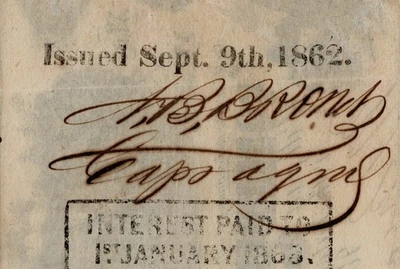 Issued Sept. 9th, 1862.
A, B, Bronch
Capt aqm
INTEREST PAID TO
1ST JANUARY 1863.